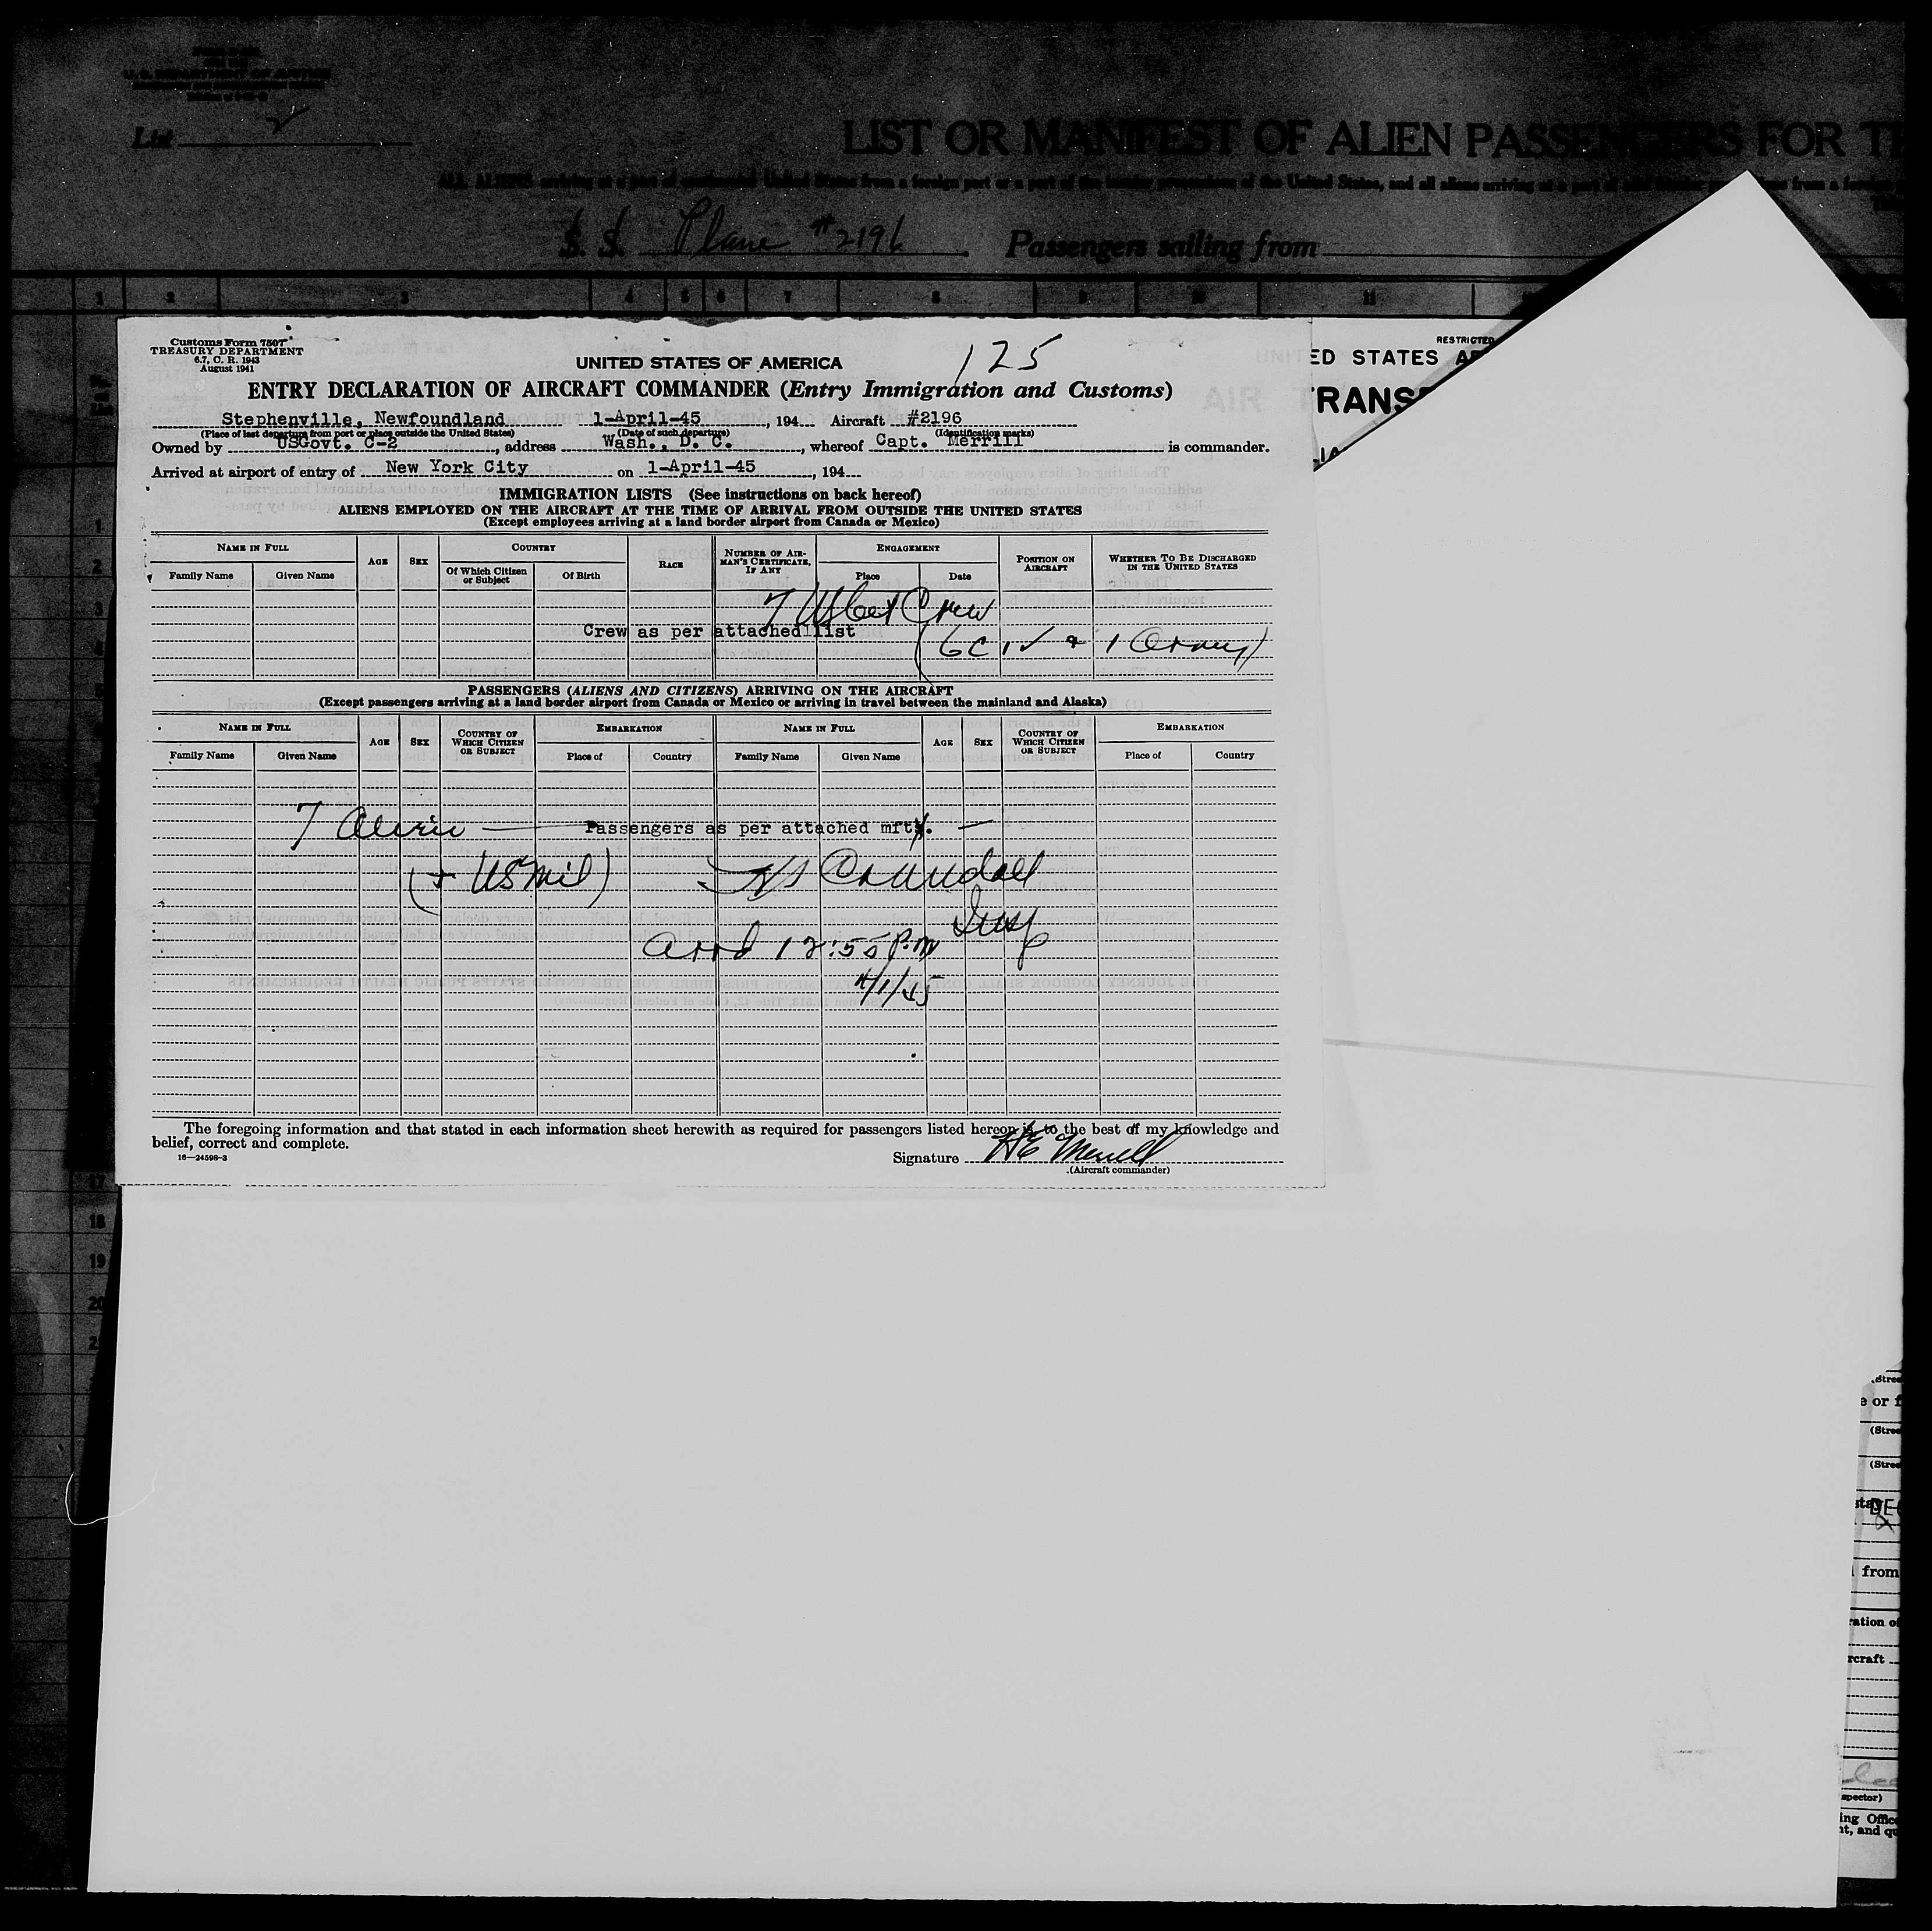 List 2
LIST OR MANIFEST OF ALIEN PASSENGERS FOR TH
ALL ALIENS arriving at a port of continental United States from a foreign port or a port of the insular possessions of the United States, and all aliens arriving at a port of
S. S. Plane #2196 Passengers sailing from
1 2 3 4 5 6 7 8 9 10 11
Customs Form 7507
TREASURY DEPARTMENT
6.7, C. R. 1943
August 1941
125
UNITED STATES OF AMERICA
ENTRY DECLARATION OF AIRCRAFT COMMANDER (Entry Immigration and Customs)
Stephenville, Newfoundland 1-April-45, 194 Aircraft #2196
(Place of last departure from port or place outside the United States) (Date of such departure) (Identification marks)
Owned by USGovt. C-2, address Wash., D. C., whereof Capt. Merrill is commander.
Arrived at airport of entry of New York City on 1-April-45, 194
IMMIGRATION LISTS (See instructions on back hereof)
ALIENS EMPLOYED ON THE AIRCRAFT AT THE TIME OF ARRIVAL FROM OUTSIDE THE UNITED STATES
(Except employees arriving at a land border airport from Canada or Mexico)
NAME IN FULL AGE SEX COUNTRY RACE NUMBER OF AIRMAN'S CERTIFICATE, IF ANY ENGAGEMENT POSITION ON AIRCRAFT WHETHER TO BE DISCHARGED IN THE UNITED STATES
Family Name Given Name Of Which Citizen or Subject Of Birth Place Date
7 Crew
Crew as per attached list
(6 & 1 Army)
PASSENGERS (ALIENS AND CITIZENS) ARRIVING ON THE AIRCRAFT
(Except passengers arriving at a land border airport from Canada or Mexico or arriving in travel between the mainland and Alaska)
NAME IN FULL AGE SEX COUNTRY OF WHICH CITIZEN OR SUBJECT EMBARKATION NAME IN FULL AGE SEX COUNTRY OF WHICH CITIZEN OR SUBJECT EMBARKATION
Family Name Given Name Place of Country Family Name Given Name Place of Country
7 Passengers as per attached mft.
(+ US Mil) Crandall
Insp
Arrd 12:55 P.M
4/1/45
The foregoing information and that stated in each information sheet herewith as required for passengers listed hereon is to the best of my knowledge and
belief, correct and complete.
16—24598-3
Signature HE Merrill
(Aircraft commander)
RESTRICTED
ED STATES
TRANS
17
18
19
20
(Stree
e or f
(Stree
(Stree
stay
DEC
from
ration of
rcraft
spector)
ing Office
nt, and qu